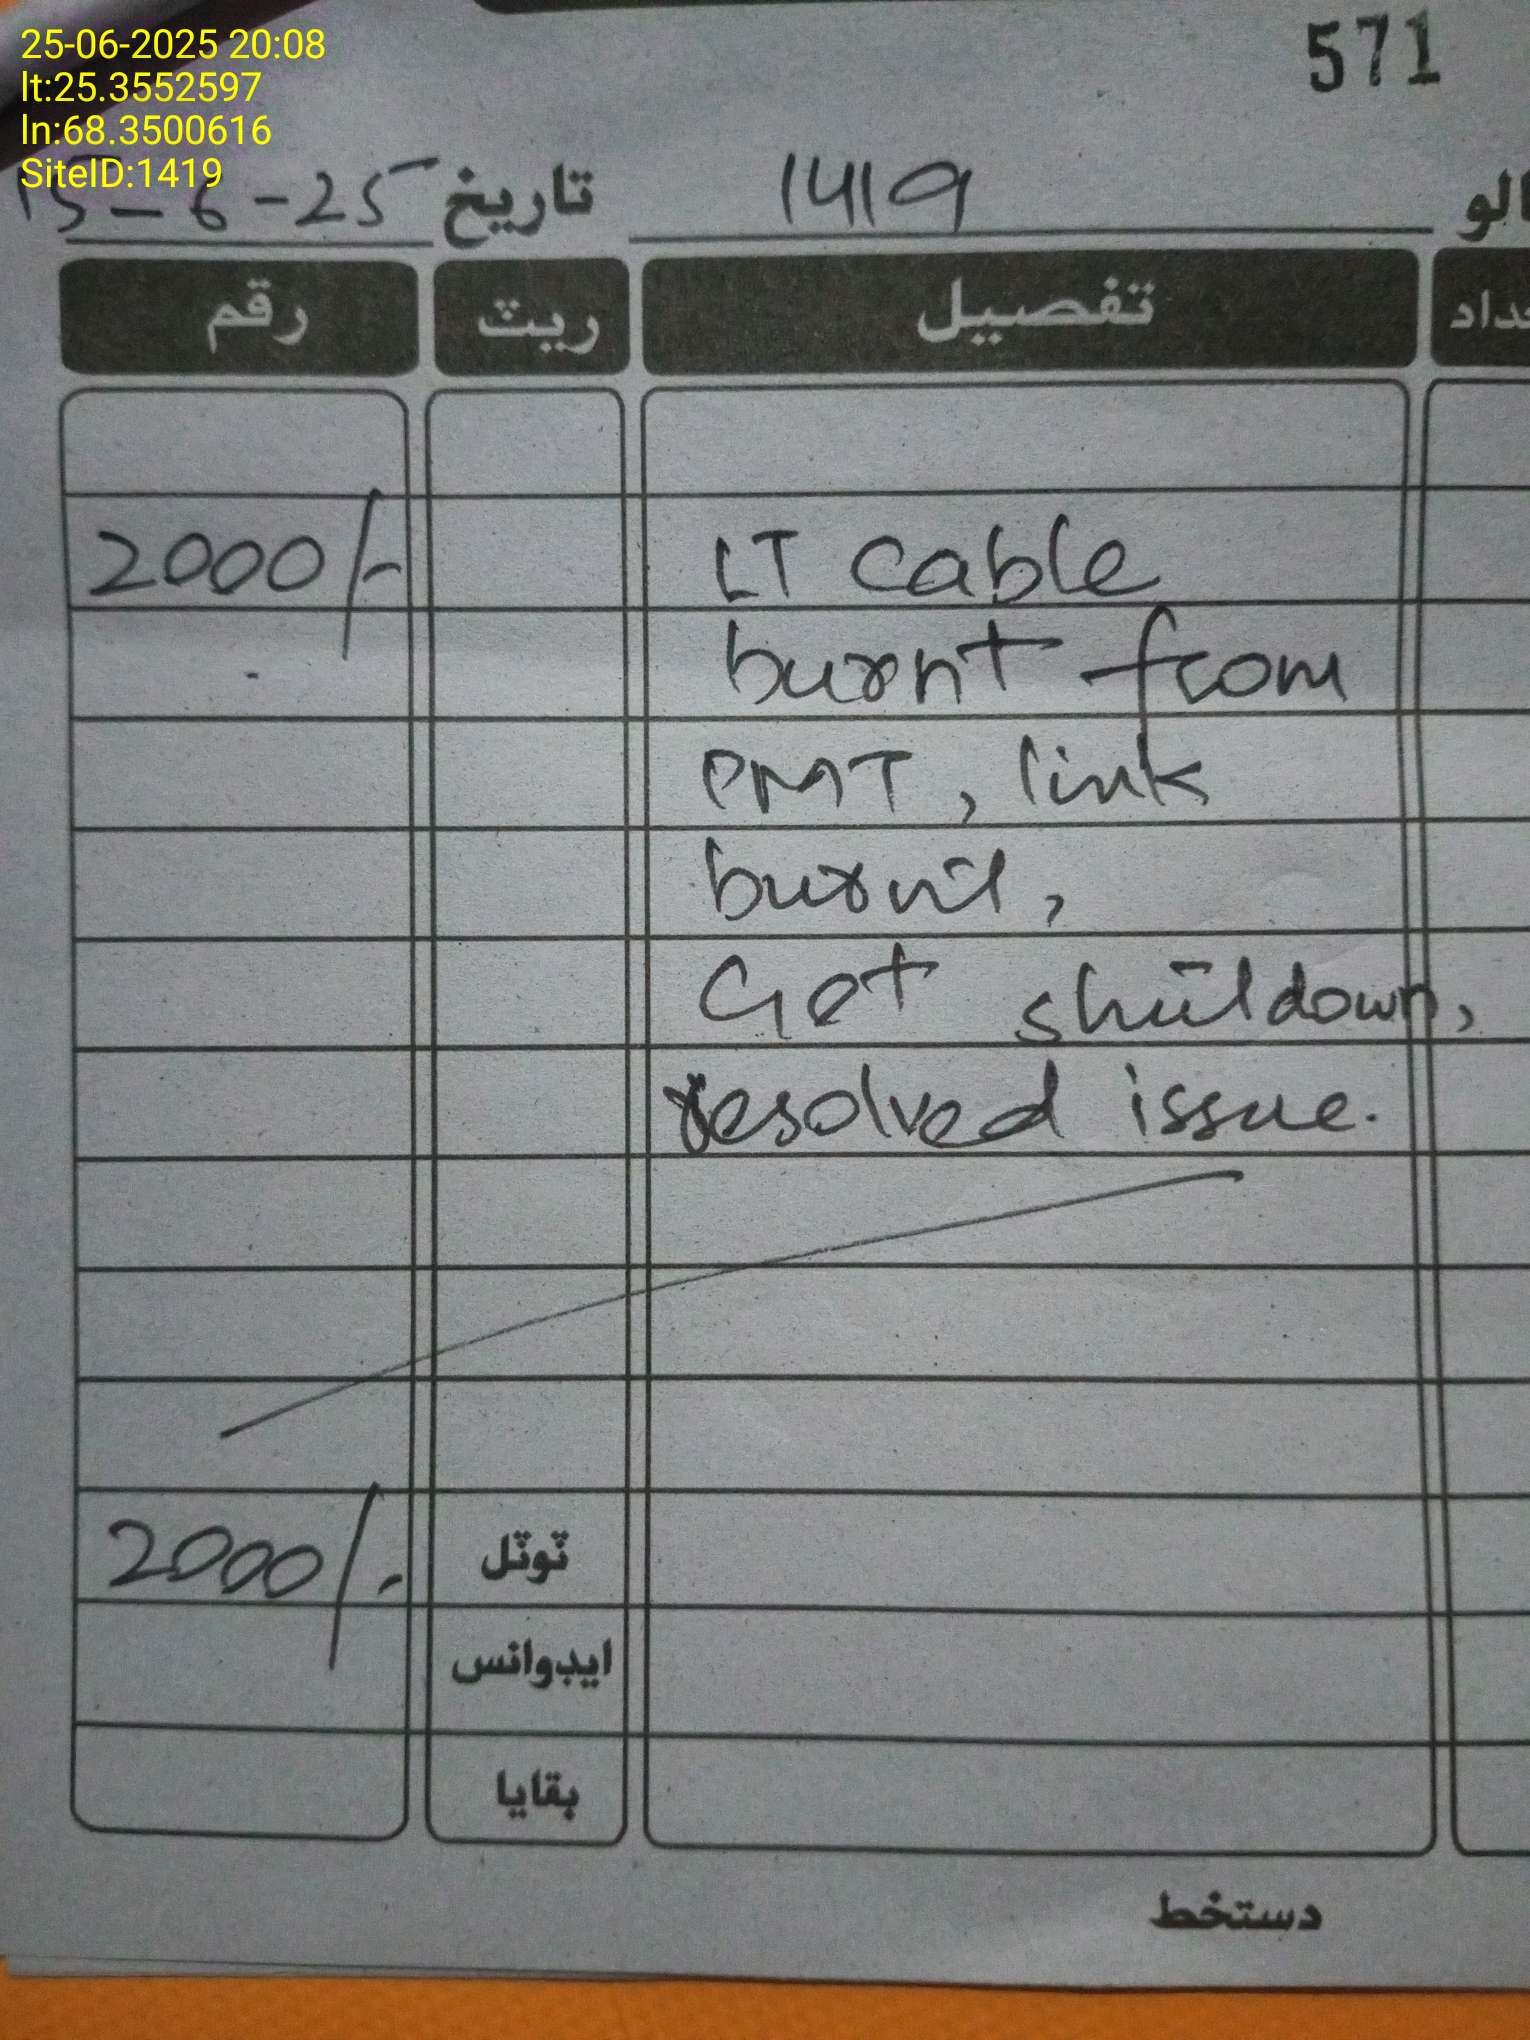 25-06-2025 20:08
lt:25.3552597
ln:68.3500616
SiteID:1419
571
1419 تاریخ 15-6-25
تفصیل ریٹ رقم
LT cable 2000/-
burnt from
PMT, link
burnt,
Get shutdown,
resolved issue.
ٹوٹل 2000/-
ایڈوانس
بقایا
دستخط